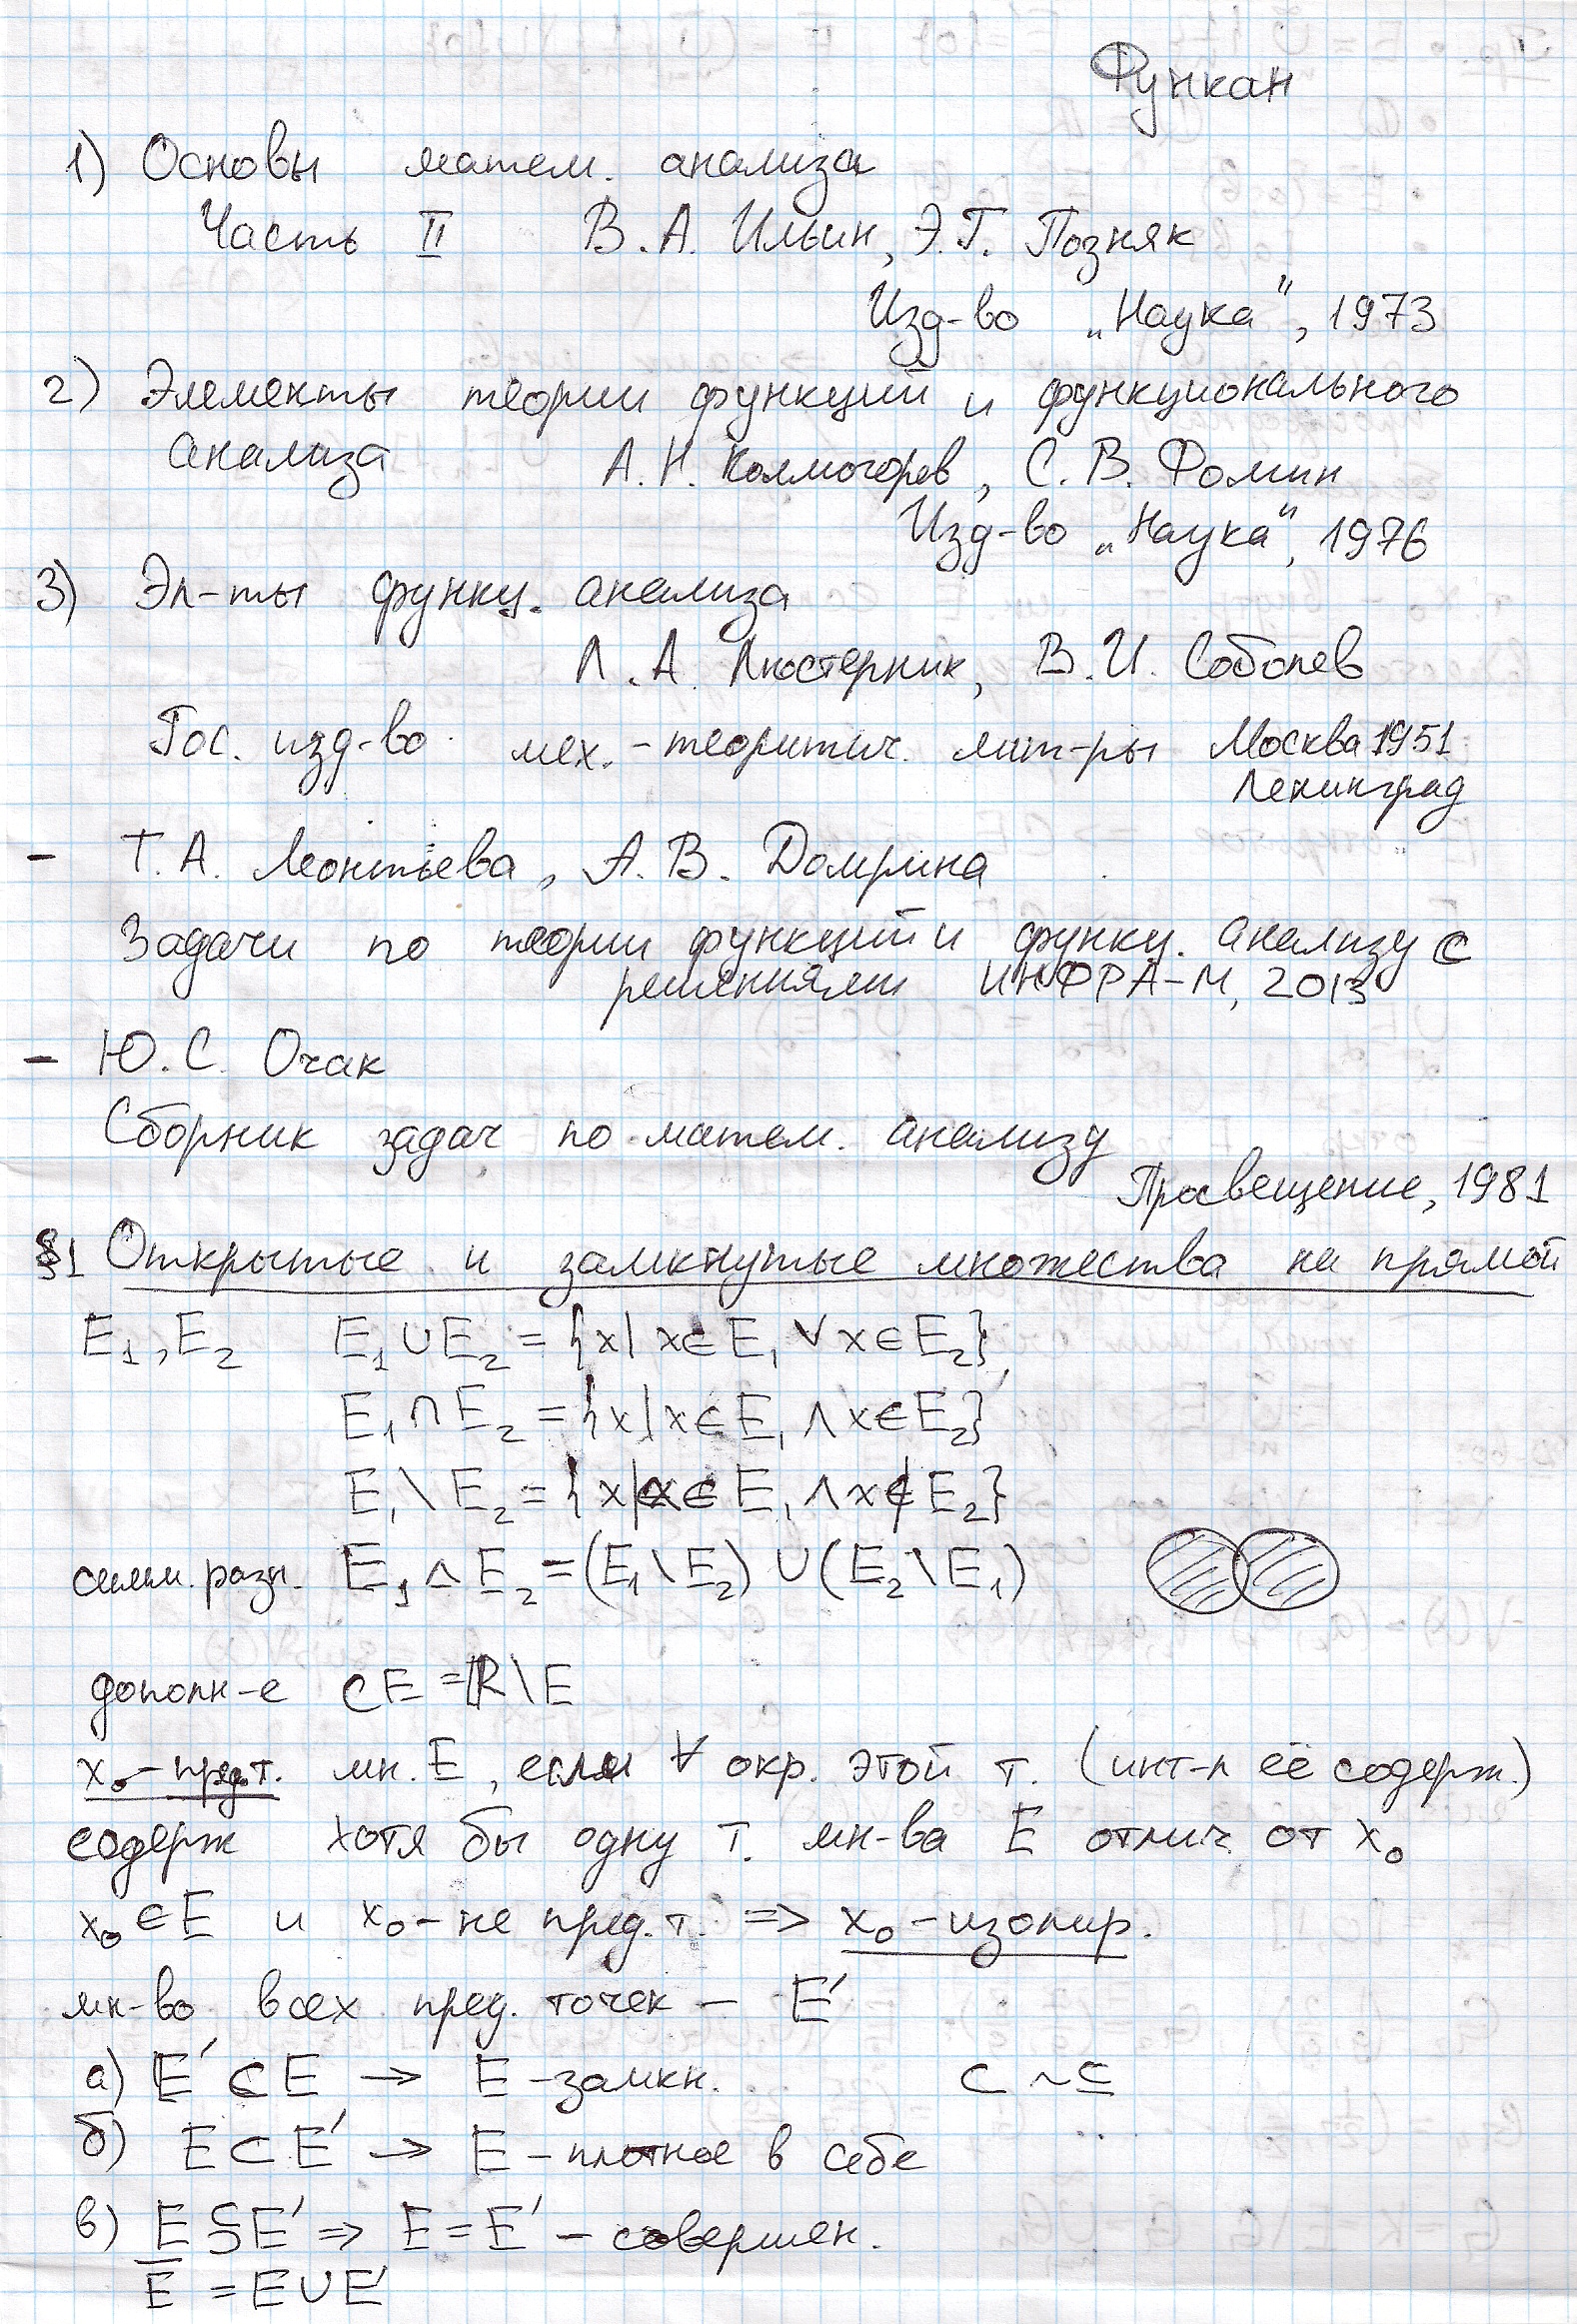 Функан
1) Основы матем. анализа
Часть II В.А. Ильин, Э.Г. Позняк
Изд-во „Наука“, 1973
2) Элементы теории функций и функционального
анализа А.Н. Колмогорев, С.В. Фомин
Изд-во „Наука“, 1976
3) Эл-ты функц. анализа
Л.А. Люстерник, В.И. Соболев
Гос. изд-во мех.-теоритич. лит-ры Москва 1951
Ленинград
- Т.А. Леонтьева, А.В. Домрина
Задачи по теории функций и функц. анализу с
решениями ИНФРА-М, 2013
- Ю.С. Очак
Сборник задач по матем. анализу
Просвещение, 1981
§1 Открытые и замкнутые множества на прямой
E₁, E₂ E₁∪E₂ = {x | x∈E₁ ∨ x∈E₂}
E₁∩E₂ = {x | x∈E₁ ∧ x∈E₂}
E₁\E₂ = {x | x∈E₁ ∧ x∉E₂}
симм. разн. E₁△E₂ = (E₁\E₂)∪(E₂\E₁)
дополн-е CE = ℝ\E
x₀ - пред.т. мн. E, если ∀ окр. этой т. (инт-л её содерж.)
содерж хотя бы одну т. мн-ва E отлич от x₀
x₀∈E и x₀ - не пред.т. ⇒ x₀ - изолир.
мн-во всех пред. точек — E′
а) E′⊂E → E - замкн. ⊂ ~ ⊆
б) E⊂E′ → E - плотное в себе
в) E⊆E′ ⇒ E = E′ - совершен.
E̅ = E∪E′